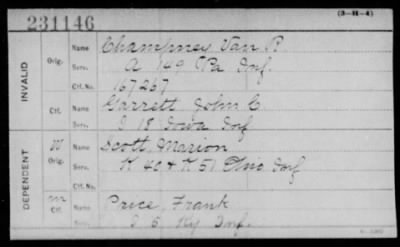 231146
(3-H-4)
INVALID
Orig.
Name Champney Van R.
Serv. A 149 Pa Inf.
Ctf. No. 167267
Ctf.
Name Garrett John C
Serv. I 18 Iowa Inf
DEPENDENT
W
Orig.
Name Scott, Marion
Serv. K 40 & K 51 Ohio Inf
Ctf. No.
m
Ctf.
Name Price, Frank
Serv. I 6 Ky Inf.